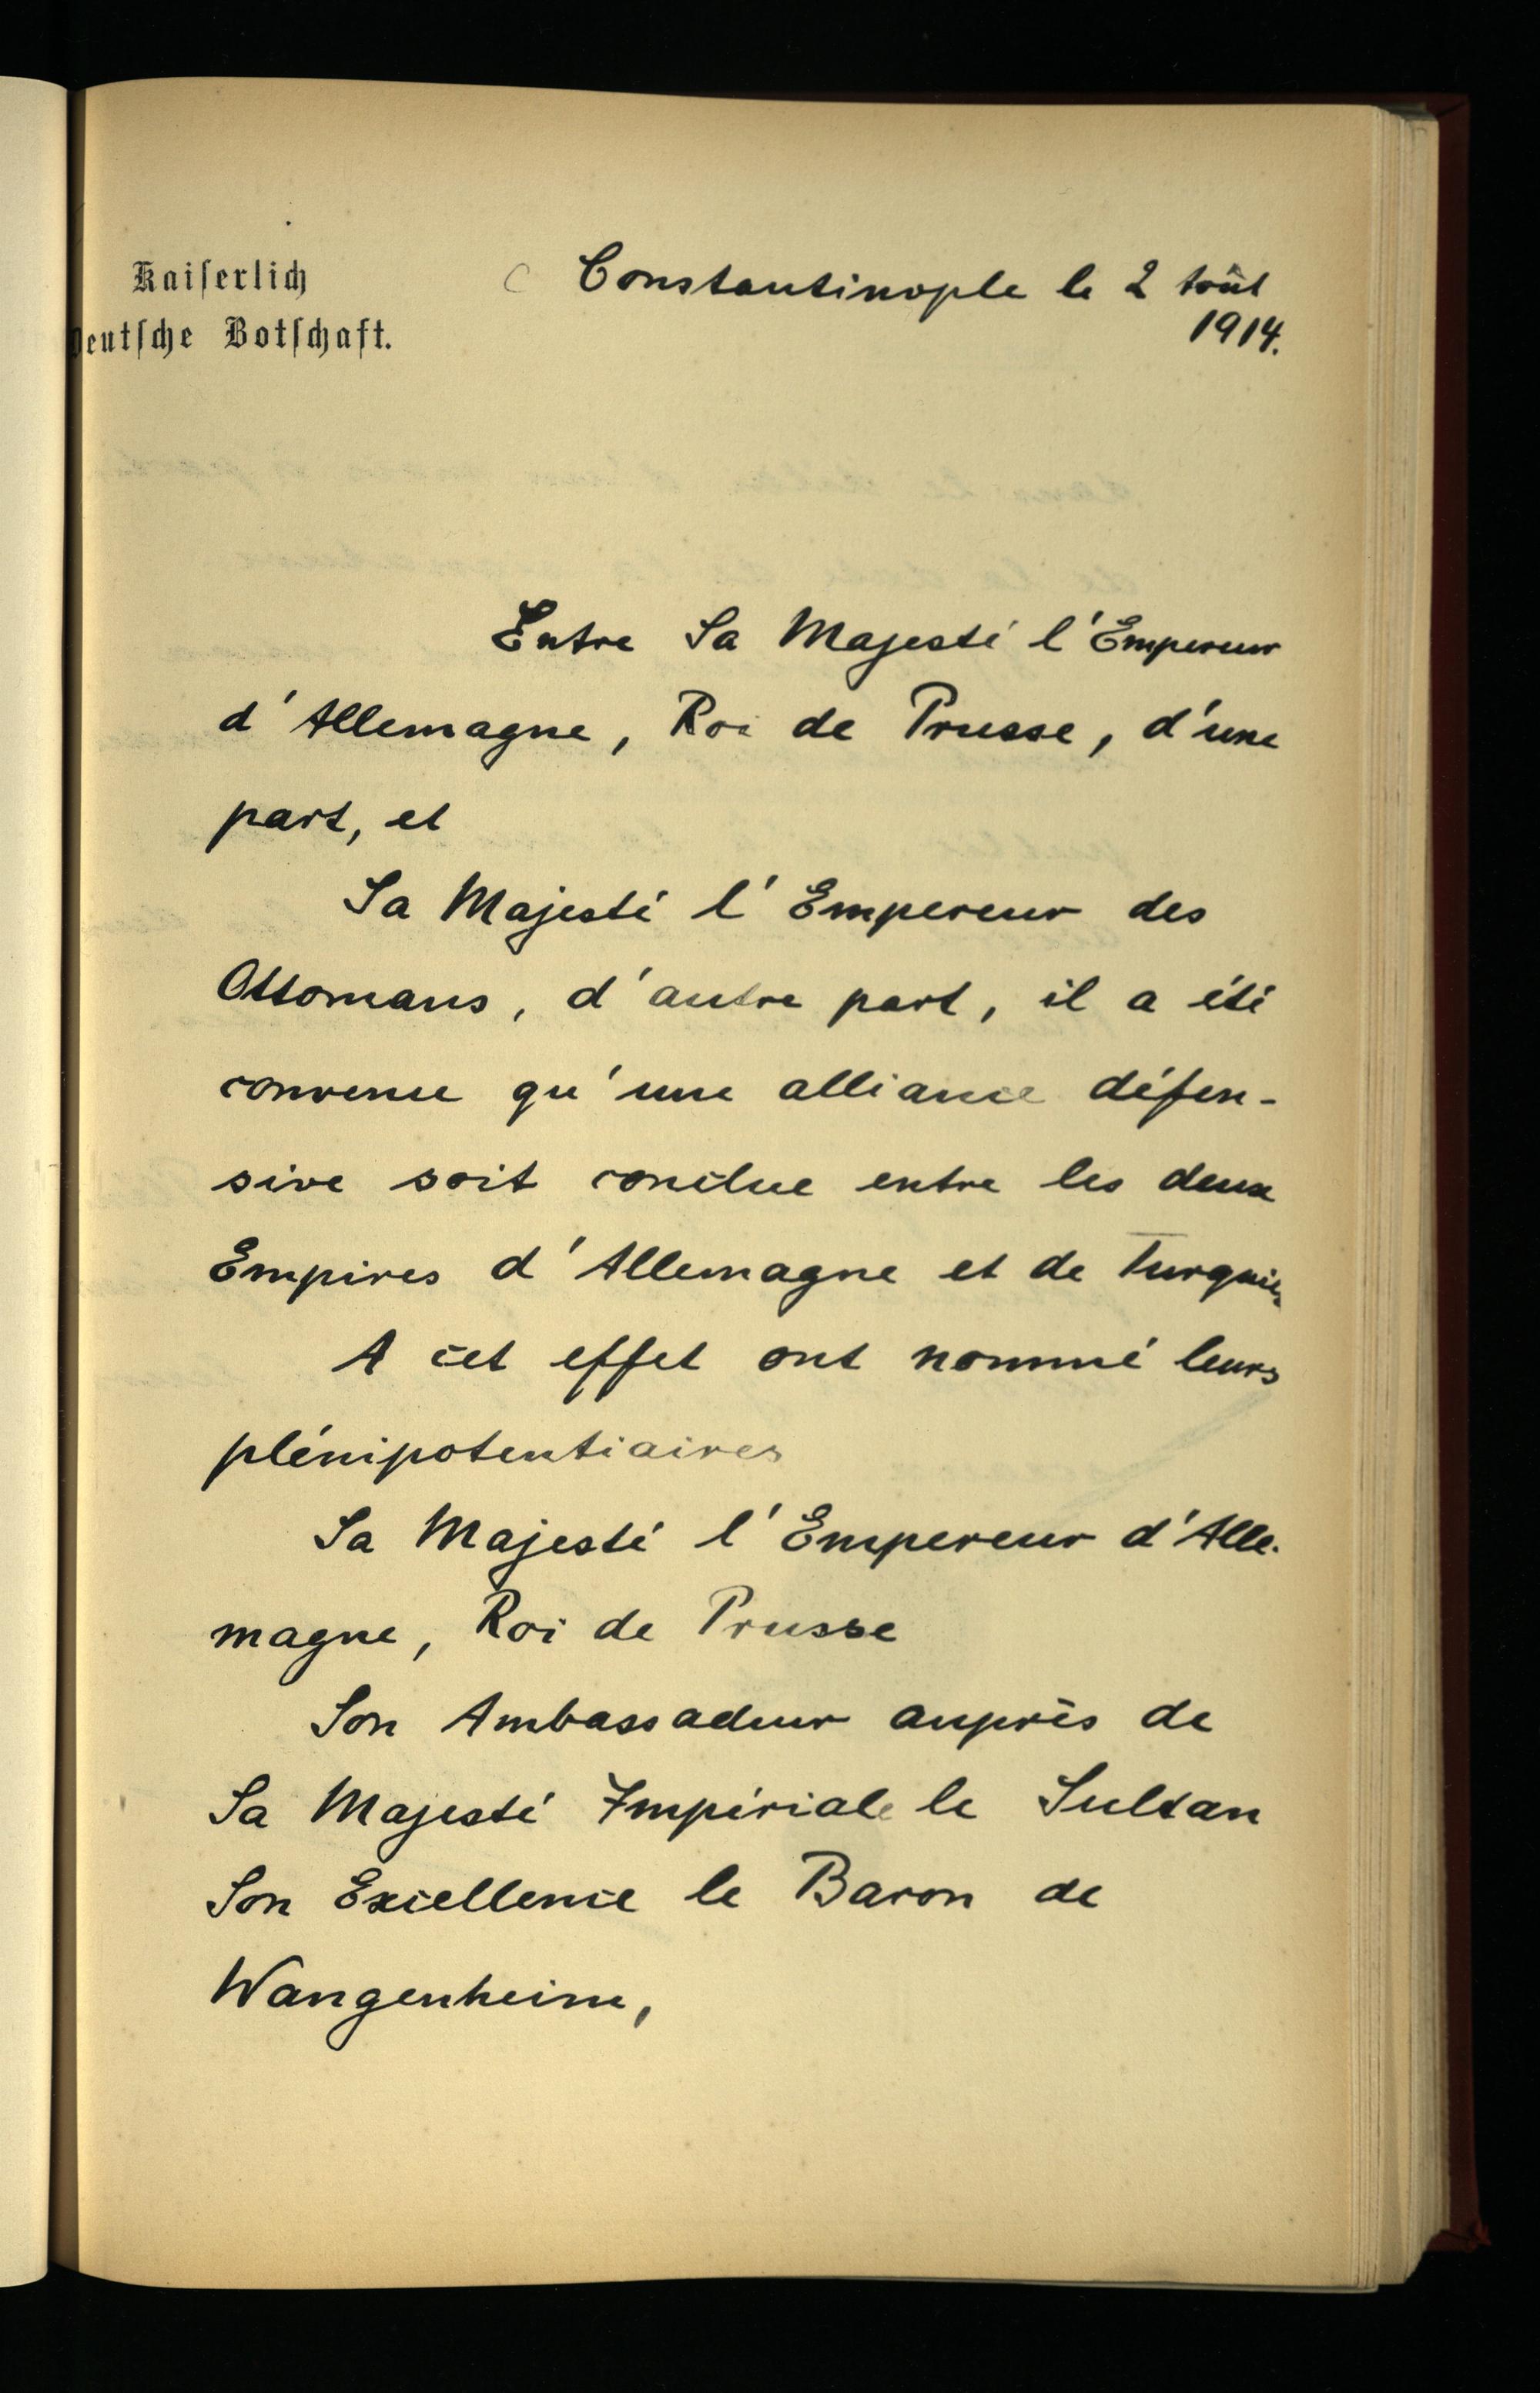 Kaiserlich
Deutsche Botschaft.
Constantinople le 2 Août
1914.
Entre Sa Majesté l'Empereur
d'Allemagne, Roi de Prusse, d'une
part, et
Sa Majesté l'Empereur des
Ottomans, d'autre part, il a été
convenu qu'une alliance défen-
sive soit conclue entre les deux
Empires d'Allemagne et de Turquie.
A cet effet ont nommé leurs
plénipotentiaires
Sa Majesté l'Empereur d'Alle-
magne, Roi de Prusse
Son Ambassadeur auprès de
Sa Majesté Impériale le Sultan
Son Excellence le Baron de
Wangenheim,